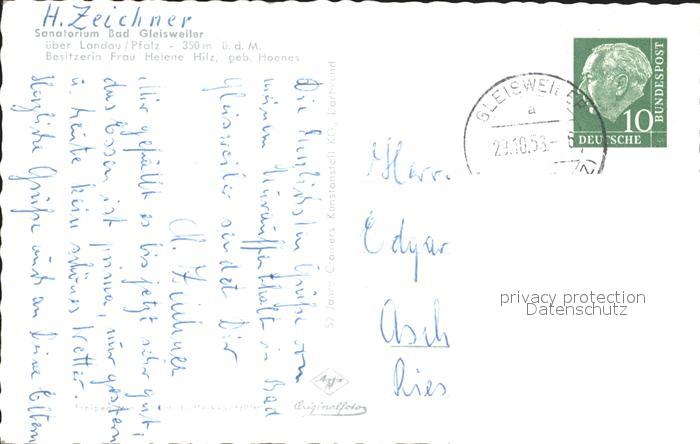 H. Zeichner
Sanatorium Bad Gleisweiler
über Landau/Pfalz - 350 m ü. d. M.
Besitzerin Frau Helene Hilz, geb. Hoenes
Die herzlichsten Grüße vom
meinem Kuraufenthalt in Bad
Gleisweiler sendet Dir
H. Zeichner
Mir gefällt es bis jetzt sehr gut,
das Essen ist prima, nur gestern
u. heute kein schönes Wetter.
Herzliche Grüße auch an Deine Eltern
52 Jahre Cramers Kunstanstalt KG., Dortmund
Agfa
Originalfoto
GLEISWEILER
a
29.10.58.-
DEUTSCHE
BUNDESPOST
10
Herr.
Edgar
Asch
Ries
privacy protection
Datenschutz